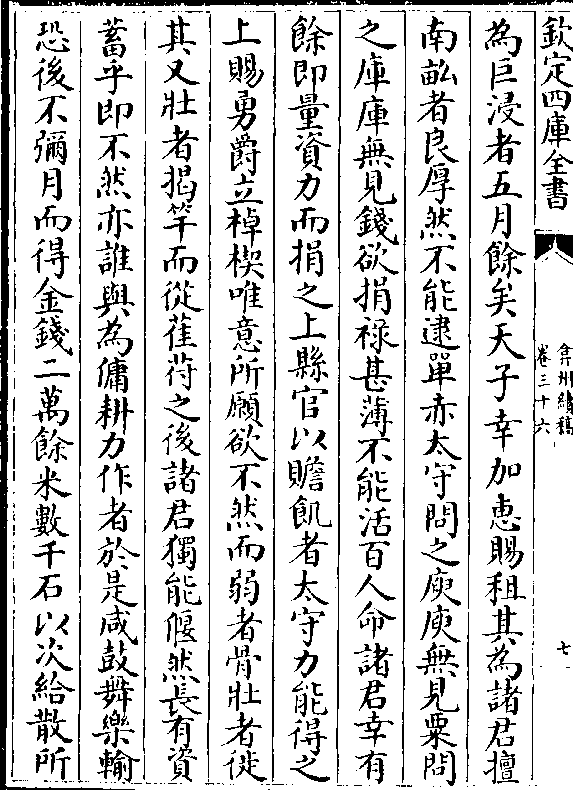 欽定四庫全書
弇州續稿
卷三十六
七
為巨浸者五月餘矣天子幸加惠賜租其為諸君擅
南畝者良厚然不能逮單赤太守問之庾庾無見粟問
之庫庫無見錢欲捐祿甚薄不能活百人命諸君幸有
餘即量資力而捐之上縣官以贍飢者太守力能得之
上賜勇爵立棹楔唯意所願欲不然而弱者骨壯者徙
其又壯者揭竿而從萑苻之後諸君獨能偃然長有資
蓄乎即不然亦誰與為傭耕力作者於是咸鼓舞樂輸
恐後不彌月而得金錢二萬餘米數千石以次給散所